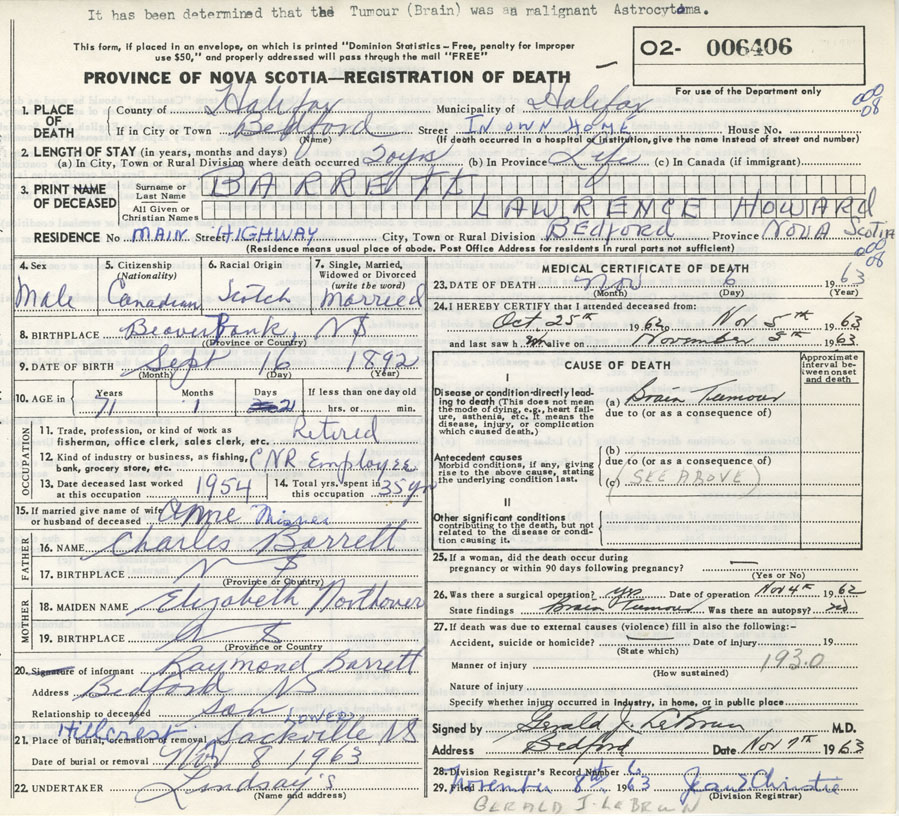 It has been determined that the Tumour (Brain) was an malignant Astrocytoma.
This form, if placed in an envelope, on which is printed "Dominion Statistics – Free, penalty for improper
use $50," and properly addressed will pass through the mail "FREE"
O2- 006406
For use of the Department only
PROVINCE OF NOVA SCOTIA—REGISTRATION OF DEATH
1. PLACE OF DEATH
County of Halifax Municipality of Halifax
If in City or Town Bedford Street IN OWN HOME House No.
(Name) (If death occurred in a hospital or institution, give the name instead of street and number)
2. LENGTH OF STAY (in years, months and days)
(a) In City, Town or Rural Division where death occurred 20 yrs (b) In Province Life (c) In Canada (if immigrant)
3. PRINT NAME OF DECEASED
Surname or Last Name BARRETT
All Given or Christian Names LAWRENCE HOWARD
RESIDENCE No. MAIN Street HIGHWAY City, Town or Rural Division Bedford Province NOVA SCOTIA
(Residence means usual place of abode. Post Office Address for residents in rural parts not sufficient)
4. Sex Male
5. Citizenship (Nationality) Canadian
6. Racial Origin Scotch
7. Single, Married, Widowed or Divorced (write the word) Married
8. BIRTHPLACE Beaver Bank, NS
(Province or Country)
9. DATE OF BIRTH Sept 16 1892
(Month) (Day) (Year)
10. AGE in Years 71 Months 1 Days 21 If less than one day old hrs. or min.
OCCUPATION
11. Trade, profession, or kind of work as fisherman, office clerk, sales clerk, etc. Retired
12. Kind of industry or business, as fishing, bank, grocery store, etc. CNR Employee
13. Date deceased last worked at this occupation 1954
14. Total yrs. spent in this occupation 35 yrs
15. If married give name of wife or husband of deceased Anne Misner
FATHER
16. NAME Charles Barrett
17. BIRTHPLACE N S
(Province or Country)
MOTHER
18. MAIDEN NAME Elizabeth Northover
19. BIRTHPLACE N S
(Province or Country
20. Signature of informant Raymond Barrett
Address Bedford NS
Relationship to deceased son
21. Place of burial, cremation or removal Hillcrest LOWER Sackville NS
Date of burial or removal Nov 8 1963
22. UNDERTAKER Lindsay's
(Name and address)
MEDICAL CERTIFICATE OF DEATH
23. DATE OF DEATH Nov 6 1963
(Month) (Day) (Year)
24. I HEREBY CERTIFY that I attended deceased from:
Oct 25th 1962 to Nov 5th 1963
and last saw h im alive on November 5th 1963
CAUSE OF DEATH
Approximate interval between onset and death
I
Disease or condition directly leading to death (This does not mean the mode of dying, e.g., heart failure, asthenia, etc. It means the disease, injury, or complication which caused death.)
(a) Brain Tumour
due to (or as a consequence of)
Antecedent causes
Morbid conditions, if any, giving rise to the above cause, stating the underlying condition last.
(b)
due to (or as a consequence of)
(c) (SEE ABOVE)
II
Other significant conditions
contributing to the death, but not related to the disease or condition causing it.
25. If a woman, did the death occur during
pregnancy or within 90 days following pregnancy? —
(Yes or No)
26. Was there a surgical operation? yes Date of operation Nov 4th 1962
State findings Brain Tumour Was there an autopsy? no
27. If death was due to external causes (violence) fill in also the following:-
Accident, suicide or homicide? Date of injury 19
(State which)
Manner of injury 193.0
(How sustained)
Nature of injury
Specify whether injury occurred in Industry, in home, or in public place
Signed by Gerald J. LeBrun M.D.
Address Bedford Date Nov 7th 1963
28. Division Registrar's Record Number 6
29. Filed November 8th 1963 Jean E Christie
(Division Registrar)
GERALD J. LEBRUN